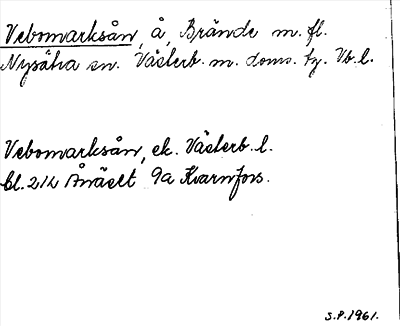 Vebomarksån, å, Brände m. fl.
Nysätra sn. Västerb. m. doms. tg. Vb. l.
Vebomarksån, ek. Västerb. l.
bl. 21L Ånäset 9a Kvarnfors.
S.P. 1961.